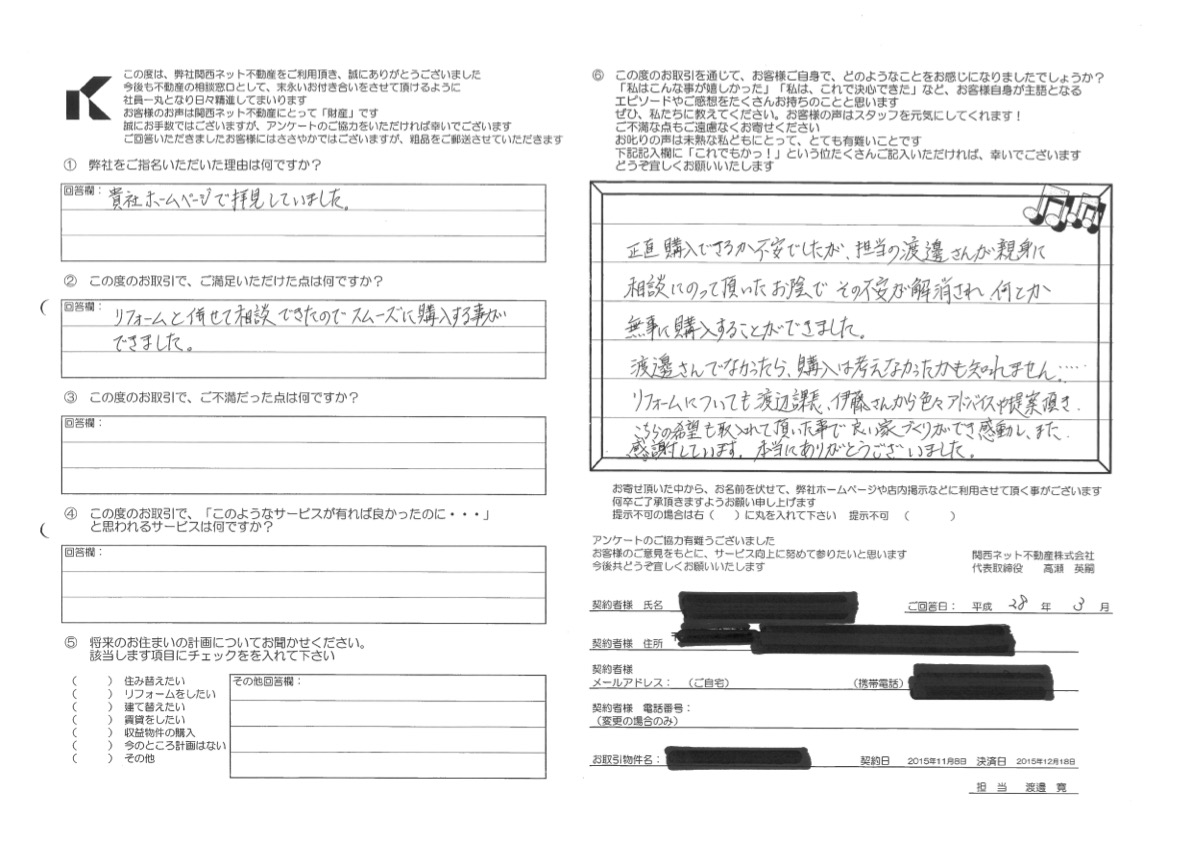 この度は、弊社関西ネット不動産をご利用頂き、誠にありがとうございました
今後も不動産の相談窓口として、末永いお付き合いをさせて頂けるように
社員一丸となり日々精進してまいります
お客様のお声は関西ネット不動産にとって「財産」です
誠にお手数ではございますが、アンケートのご協力をいただければ幸いでございます
ご回答いただきましたお客様にはささやかではございますが、粗品をご郵送させていただきます
① 弊社をご指名いただいた理由は何ですか？
回答欄：
貴社ホームページで拝見していました。
② この度のお取引で、ご満足いただけた点は何ですか？
回答欄：
リフォームと併せて相談できたのでスムーズに購入する事が
できました。
③ この度のお取引で、ご不満だった点は何ですか？
回答欄：
④ この度のお取引で、「このようなサービスが有れば良かったのに・・・」
と思われるサービスは何ですか？
回答欄：
⑤ 将来のお住まいの計画についてお聞かせください。
該当します項目にチェックをを入れて下さい
（　　）住み替えたい
（　　）リフォームをしたい
（　　）建て替えたい
（　　）賃貸をしたい
（　　）収益物件の購入
（　　）今のところ計画はない
（　　）その他
その他回答欄：
⑥ この度のお取引を通じて、お客様ご自身で、どのようなことをお感じになりましたでしょうか？
「私はこんな事が嬉しかった」「私は、これで決心できた」など、お客様自身が主語となる
エピソードやご感想をたくさんお持ちのことと思います
ぜひ、私たちに教えてください。お客様の声はスタッフを元気にしてくれます！
ご不満な点もご遠慮なくお寄せください
お叱りの声は未熟な私どもにとって、とても有難いことです
下記記入欄に「これでもかっ！」という位たくさんご記入いただければ、幸いでございます
どうぞ宜しくお願いいたします
正直購入できるか不安でしたが、担当の渡邊さんが親身に
相談にのって頂いたお陰でその不安が解消され、何とか
無事に購入することができました。
渡邊さんでなかったら、購入は考えなかったかも知れません……
リフォームについても渡辺課長、伊藤さんから色々アドバイスや提案頂き、
こちらの希望も取入れて頂いた事で良い家づくりができ感動し、また、
感謝しています。本当にありがとうございました。
お寄せ頂いた中から、お名前を伏せて、弊社ホームページや店内掲示などに利用させて頂く事がございます
何卒ご了承頂きますようお願い申し上げます
提示不可の場合は右（　　）に丸を入れて下さい　提示不可　（　　　）
アンケートのご協力有難うございました
お客様のご意見をもとに、サービス向上に努めて参りたいと思います
今後共どうぞ宜しくお願いいたします
関西ネット不動産株式会社
代表取締役　高瀬　英嗣
契約者様　氏名
ご回答日：　平成　28　年　3　月
契約者様　住所
契約者様
メールアドレス：　（ご自宅）　（携帯電話）
契約者様　電話番号：
（変更の場合のみ）
お取引物件名：　契約日　2015年11月8日　決済日　2015年12月18日
担　当　渡邊　寛